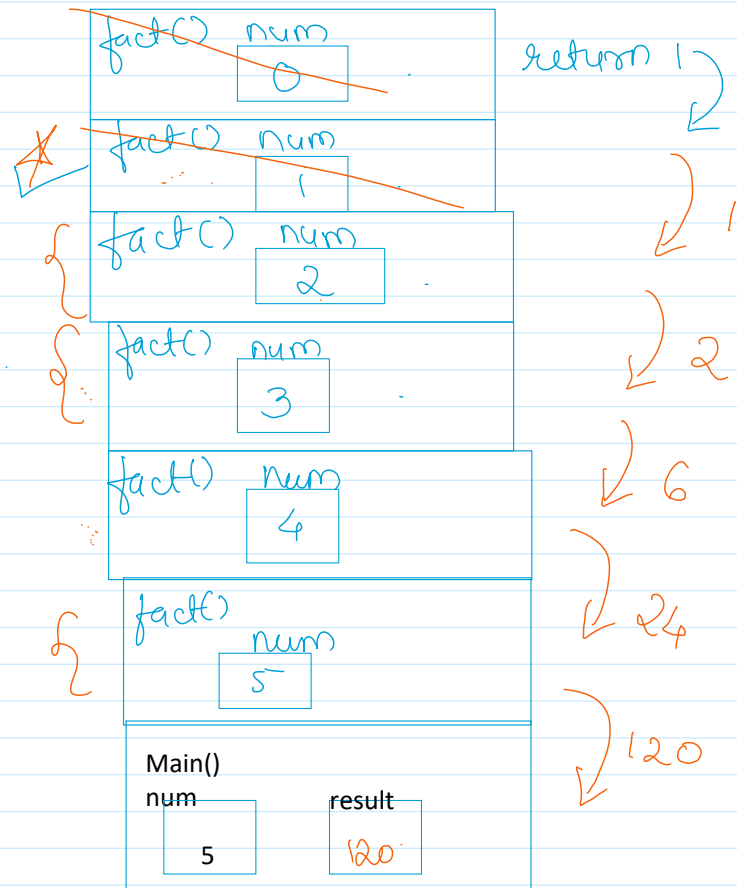 fact() num
0
return 1
fact() num
1
1
fact() num
2
2
fact() num
3
6
fact() num
4
24
fact()
num
5
120
Main()
num result
5 120